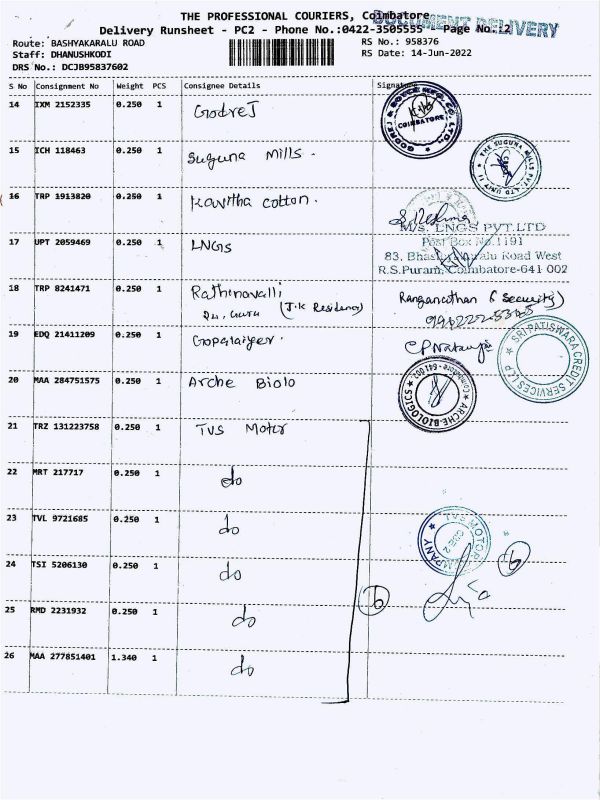 THE PROFESSIONAL COURIERS, Coimbatore
DOCUMENT DELIVERY
Delivery Runsheet - PC2 - Phone No.:0422-3505555 - Page No.:2
Route: BASHYAKARALU ROAD
RS No.: 958376
Staff: DHANUSHKODI
RS Date: 14-Jun-2022
DRS No.: DCJB95837602
S No Consignment No Weight PCS Consignee Details Signature
14 IXM 2152335 0.250 1 Godrej
GODREJ & BOYCE MFG. CO. LTD.
COIMBATORE
15 ICH 118463 0.250 1 Suguna Mills.
THE SUGUNA MILLS PVT. LTD UNIT II
16 TRP 1913820 0.250 1 Kavitha cotton.
17 UPT 2059469 0.250 1 LNGS
M/s. LNGS PVT.LTD
Post Box No.1191
83, Bhashyakaralu Road West
R.S.Puram, Coimbatore-641 002
18 TRP 8241471 0.250 1 Rathinavalli
(J.K Residency)
Ranganathan (Security)
19 EDQ 21411209 0.250 1 Gopalaiyer.
SRI PATISWARA CREDIT SERVICES LLP
20 MAA 284751575 0.250 1 Arche Biolo
ARCHE-BIOLOGICS
Coimbatore - 641 002
21 TRZ 131223758 0.250 1 TVS Motor
22 MRT 217717 0.250 1 do
23 TVL 9721685 0.250 1 do
TVS MOTOR COMPANY
CBE 2
24 TSI 5206130 0.250 1 do
6
25 RMD 2231932 0.250 1 do
6
26 MAA 277851401 1.340 1 do